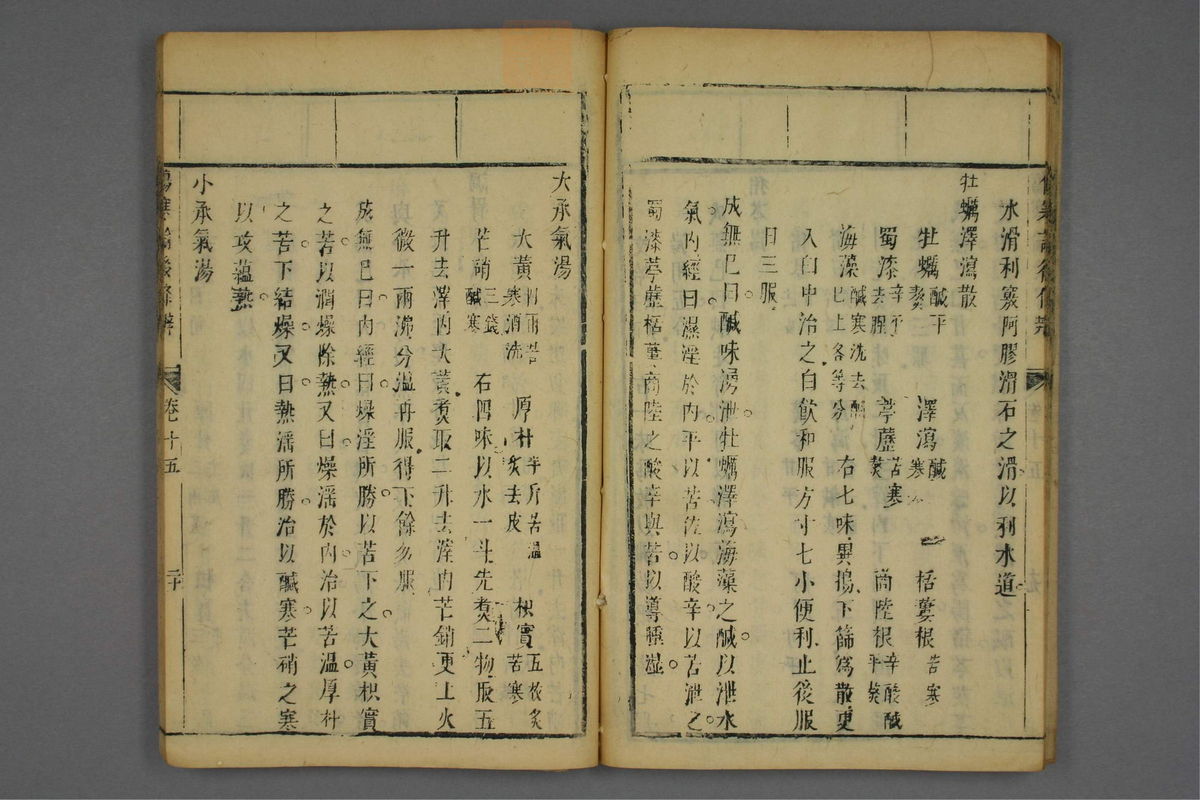 水滑利竅阿膠滑石之滑以利水道
牡蠣澤瀉散
牡蠣鹹平熬 澤瀉鹹寒 栝蔞根苦寒
蜀漆辛平去腥 葶藶苦寒熬 商陸根辛酸鹹平熬
海藻鹹寒洗去鹹已上各等分 右七味異搗下篩爲散更
入臼中治之白飲和服方寸七小便利止後服
日三服
成無巳曰鹹味湧泄牡蠣澤瀉海藻之鹹以泄水
氣内經曰濕淫於内平以苦佐以酸辛以苦泄之
蜀漆葶藶栝蔞商陸之酸辛與苦以導腫濕
大承氣湯
大黄四兩苦寒酒洗 厚朴半斤苦溫炙去皮 枳實五枚炙苦寒
芒硝三錢鹹寒 右四味以水一斗先煑二物取五
升去滓内大黄煑取二升去滓内芒硝更上火
微一兩沸分溫再服得下餘勿服
成無巳曰内經曰燥淫所勝以苦下之大黄枳實
之苦以潤燥除熱又曰燥淫於内治以苦溫厚朴
之苦下結燥又曰熱淫所勝治以鹹寒芒硝之寒
以攻蘊熱
小承氣湯
傷寒論後條辨 卷十五 二十